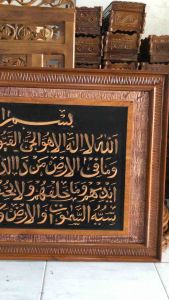 بسم
الله لا اله الا هو الحي القيو
وما في الارض من ذا الذ
ايديهم وما خلفهم ولا يحيـ
السموت والارض و